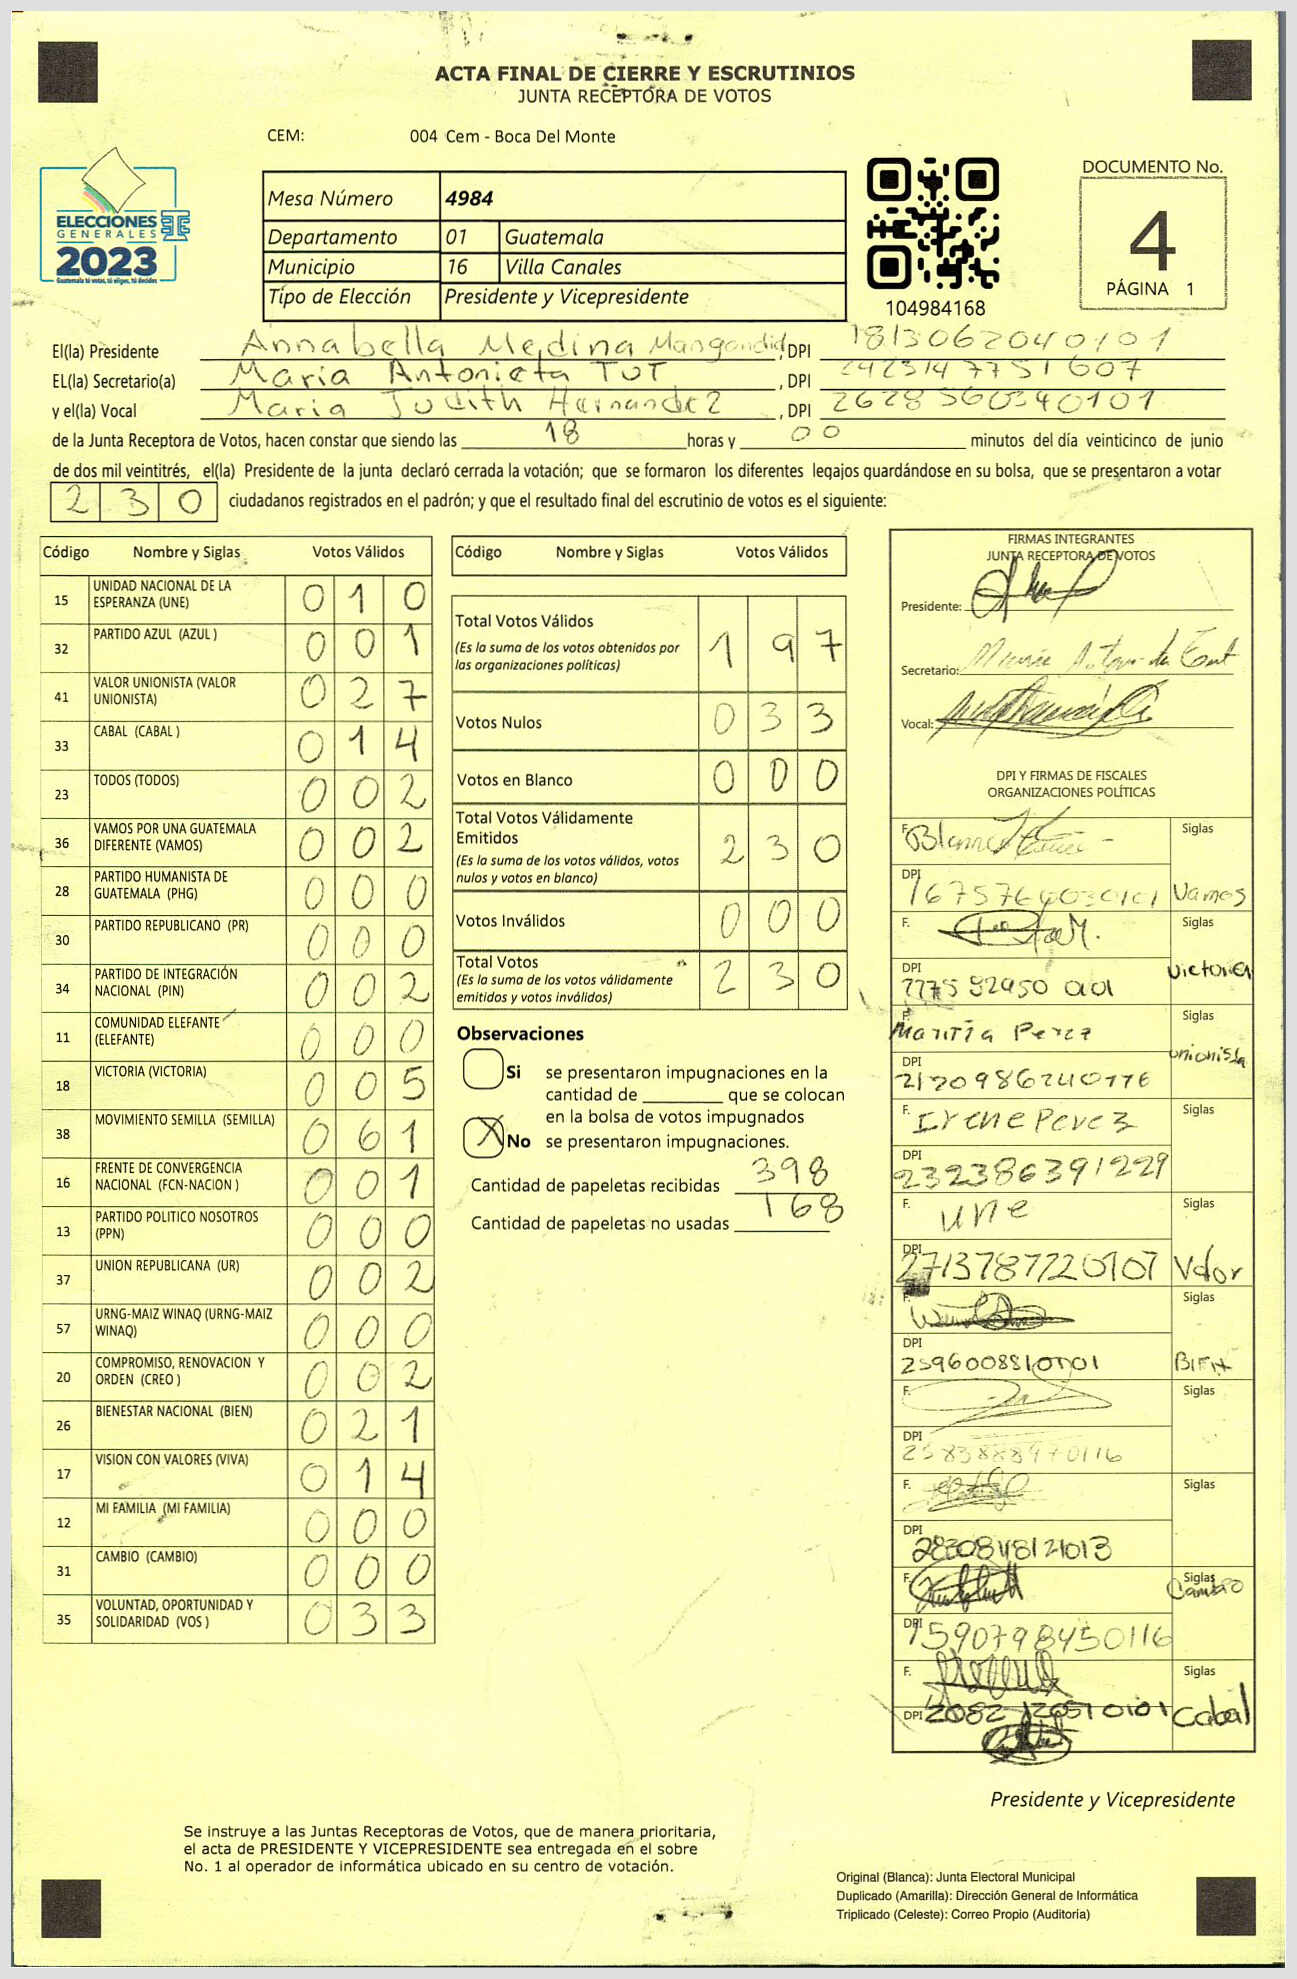 ACTA FINAL DE CIERRE Y ESCRUTINIOS
JUNTA RECEPTORA DE VOTOS
CEM: 004 Cem - Boca Del Monte
ELECCIONES
GENERALES
2023
Guatemala tú votas, tú eliges, tú decides
Mesa Número 4984
Departamento 01 Guatemala
Municipio 16 Villa Canales
Tipo de Elección Presidente y Vicepresidente
104984168
DOCUMENTO No.
4
PÁGINA 1
El(la) Presidente Annabella Medina Mangandid, DPI 1813062040101
EL(la) Secretario(a) Maria Antonieta TUT, DPI 2423147751607
y el(la) Vocal Maria Judith Hernandez, DPI 2628560340101
de la Junta Receptora de Votos, hacen constar que siendo las 18 horas y 00 minutos del día veinticinco de junio
de dos mil veintitrés, el(la) Presidente de la junta declaró cerrada la votación; que se formaron los diferentes legajos guardándose en su bolsa, que se presentaron a votar
230 ciudadanos registrados en el padrón; y que el resultado final del escrutinio de votos es el siguiente:
Código Nombre y Siglas Votos Válidos
15 UNIDAD NACIONAL DE LA ESPERANZA (UNE) 010
32 PARTIDO AZUL (AZUL ) 001
41 VALOR UNIONISTA (VALOR UNIONISTA) 027
33 CABAL (CABAL ) 014
23 TODOS (TODOS) 002
36 VAMOS POR UNA GUATEMALA DIFERENTE (VAMOS) 002
28 PARTIDO HUMANISTA DE GUATEMALA (PHG) 000
30 PARTIDO REPUBLICANO (PR) 000
34 PARTIDO DE INTEGRACIÓN NACIONAL (PIN) 002
11 COMUNIDAD ELEFANTE (ELEFANTE) 000
18 VICTORIA (VICTORIA) 005
38 MOVIMIENTO SEMILLA (SEMILLA) 061
16 FRENTE DE CONVERGENCIA NACIONAL (FCN-NACION ) 001
13 PARTIDO POLITICO NOSOTROS (PPN) 000
37 UNION REPUBLICANA (UR) 002
57 URNG-MAIZ WINAQ (URNG-MAIZ WINAQ) 000
20 COMPROMISO, RENOVACION Y ORDEN (CREO ) 002
26 BIENESTAR NACIONAL (BIEN) 021
17 VISION CON VALORES (VIVA) 014
12 MI FAMILIA (MI FAMILIA) 000
31 CAMBIO (CAMBIO) 000
35 VOLUNTAD, OPORTUNIDAD Y SOLIDARIDAD (VOS ) 033
Código Nombre y Siglas Votos Válidos
Total Votos Válidos 197
(Es la suma de los votos obtenidos por
las organizaciones políticas)
Votos Nulos 033
Votos en Blanco 000
Total Votos Válidamente
Emitidos 230
(Es la suma de los votos válidos, votos
nulos y votos en blanco)
Votos Inválidos 000
Total Votos 230
(Es la suma de los votos válidamente
emitidos y votos inválidos)
Observaciones
Si se presentaron impugnaciones en la
cantidad de ________ que se colocan
en la bolsa de votos impugnados
X No se presentaron impugnaciones.
Cantidad de papeletas recibidas 398
Cantidad de papeletas no usadas 168
FIRMAS INTEGRANTES
JUNTA RECEPTORA DE VOTOS
Presidente:
Secretario:
Vocal:
DPI Y FIRMAS DE FISCALES
ORGANIZACIONES POLÍTICAS
F. Siglas
DPI Vamos
F. Siglas
DPI Victoria
F. Maritia Perez Siglas
DPI 2120986240116 unionista
F. Irene Perez Siglas
DPI 232386391229
F. une Siglas
DPI 2713787720107 Valor
F. Siglas
DPI 2596008810101 BIEN
F. Siglas
DPI 2583888970116
F. Siglas
DPI 2830848121013
F. Siglas Cambio
DPI 1590798450116
F. Siglas
DPI Cabal
Presidente y Vicepresidente
Se instruye a las Juntas Receptoras de Votos, que de manera prioritaria,
el acta de PRESIDENTE Y VICEPRESIDENTE sea entregada en el sobre
No. 1 al operador de informática ubicado en su centro de votación.
Original (Blanca): Junta Electoral Municipal
Duplicado (Amarilla): Dirección General de Informática
Triplicado (Celeste): Correo Propio (Auditoría)